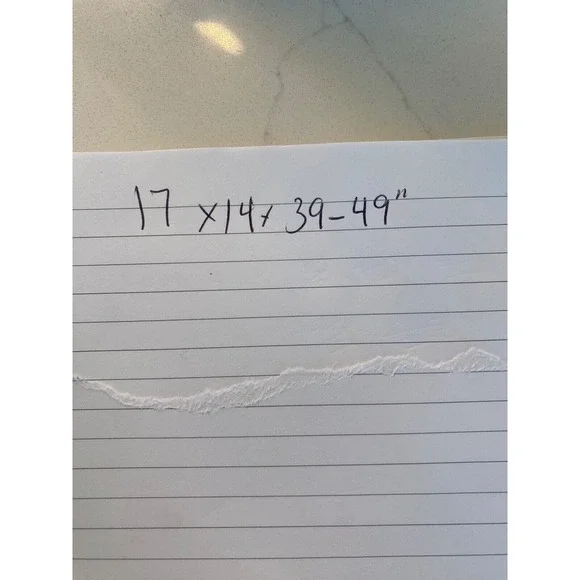 17 x14x 39-49"